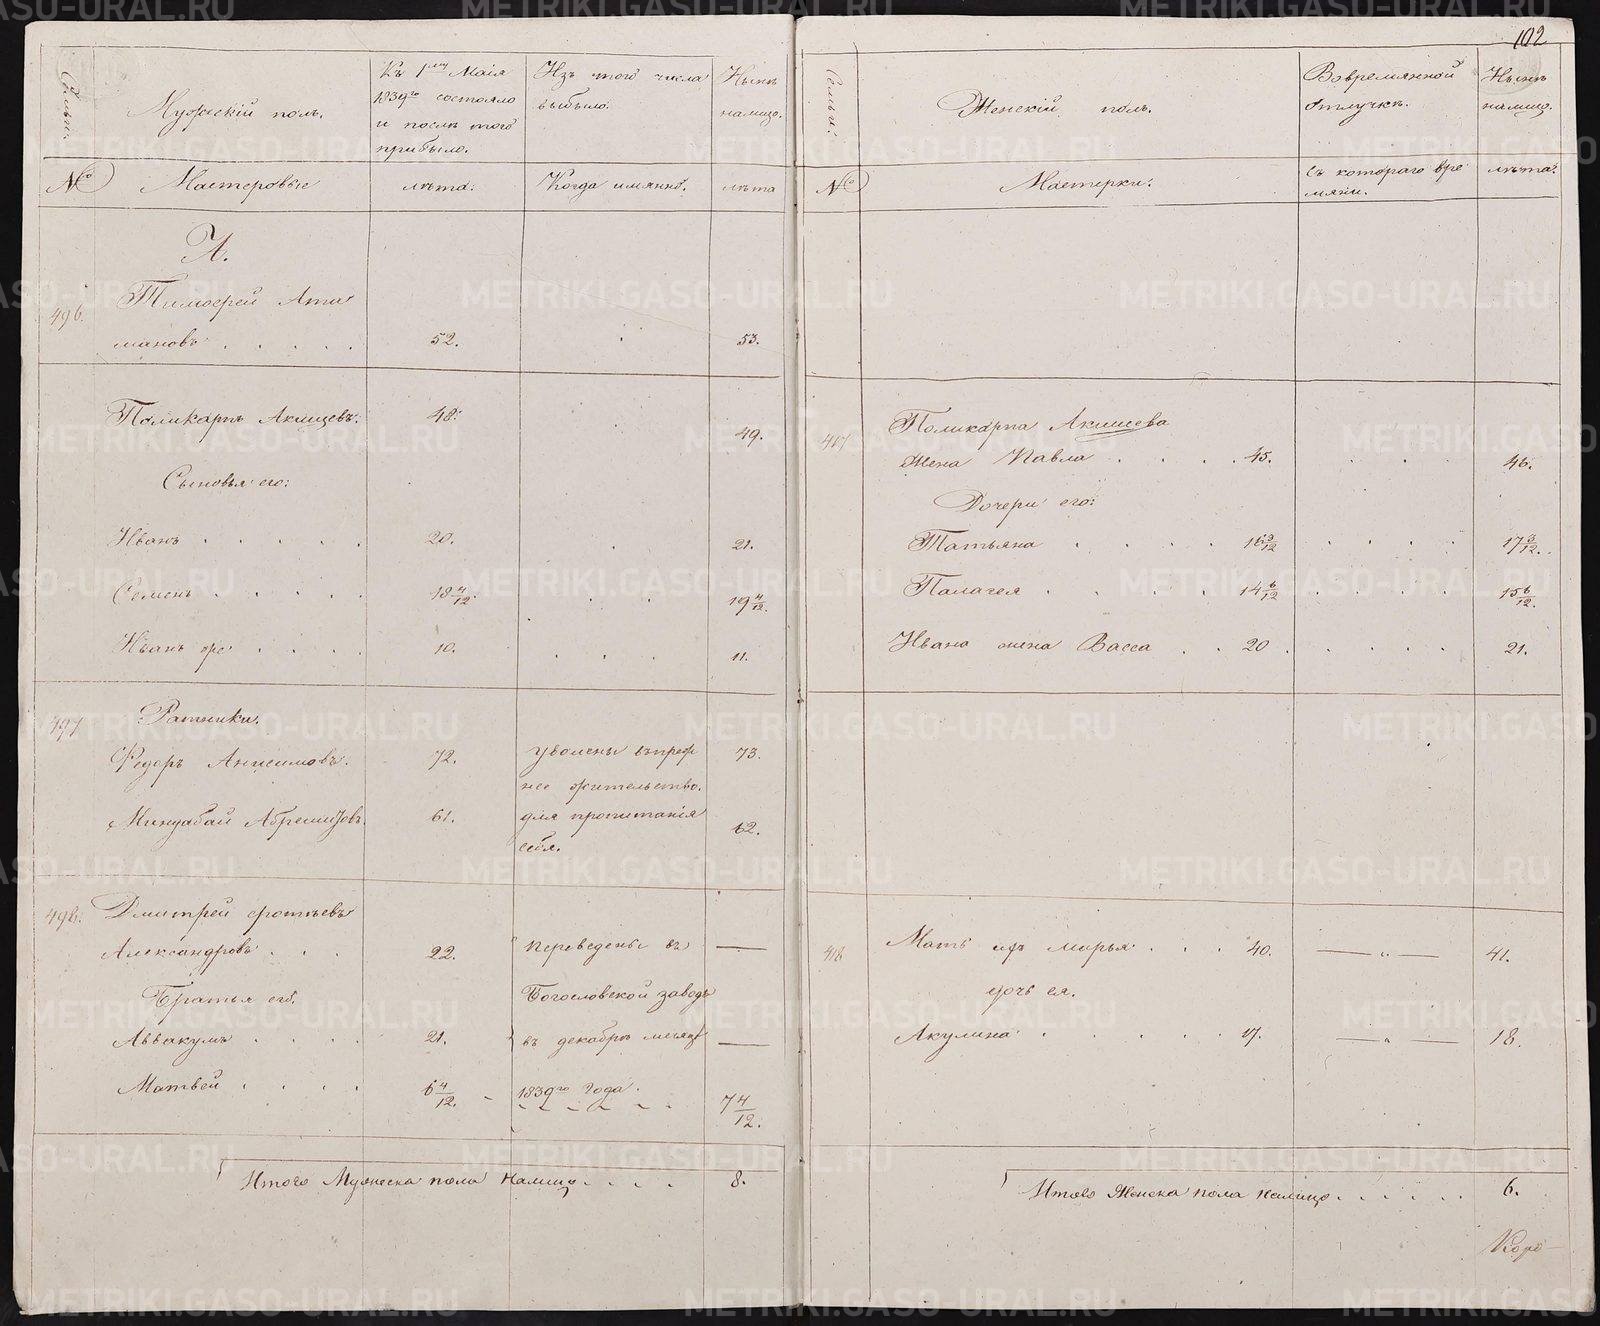 102
Семьи.
Мужескій полъ.
Къ 1му Маія
1839го состояло
и послѣ того
прибыло.
Изъ того числа
выбыло.
Нынѣ
налицо.
№
Мастеровые
лѣта.
Когда имянно.
лѣта
А.
496.
Тимофей Ата
мановъ . . . . . 52. 53.
Поликарпъ Акищевъ. 48. 49.
Сыновья его:
Иванъ . . . . . 20. 21.
Семенъ . . . . . 18 4/12. 19 4/12.
Иванъ же . . . . 10. 11.
497
Ратники.
Федоръ Анисимовъ. 72. уволены въ преж 73.
нее жительство.
61. для пропитанія 62.
себя.
498.
Дмитрей Фотѣевъ
Александровъ . . . 22. переведены въ —
Братья его. Богословской заводъ
Аввакумъ . . . . 21. въ декабрѣ месяцѣ —
Матвей . . . . 6 4/12. 1839го года. 7 4/12.
Итого Мужеска пола налицо . . . . 8.
Семьи.
Женскій полъ.
Вовремянной
отлучкѣ.
Нынѣ
налицо.
№
Мастерки.
съ котораго вре
мяни.
лѣта.
417
Поликарпа Акишева
жена Павла . . . . 45. 46.
Дочери его:
Татьяна . . . . 16 3/12 17 3/12.
Палагея . . . . . 14 6/12 15 6/12.
Ивана жена Васса . . 20 . 21.
418
Мать ихъ Марья . . . 40. — „ — 41.
дочь ея.
Акулина . . . . . 17. — „ — 18.
Итого Женска пола налицо . . . . . . 6.
METRIKI.GASO-URAL.RU